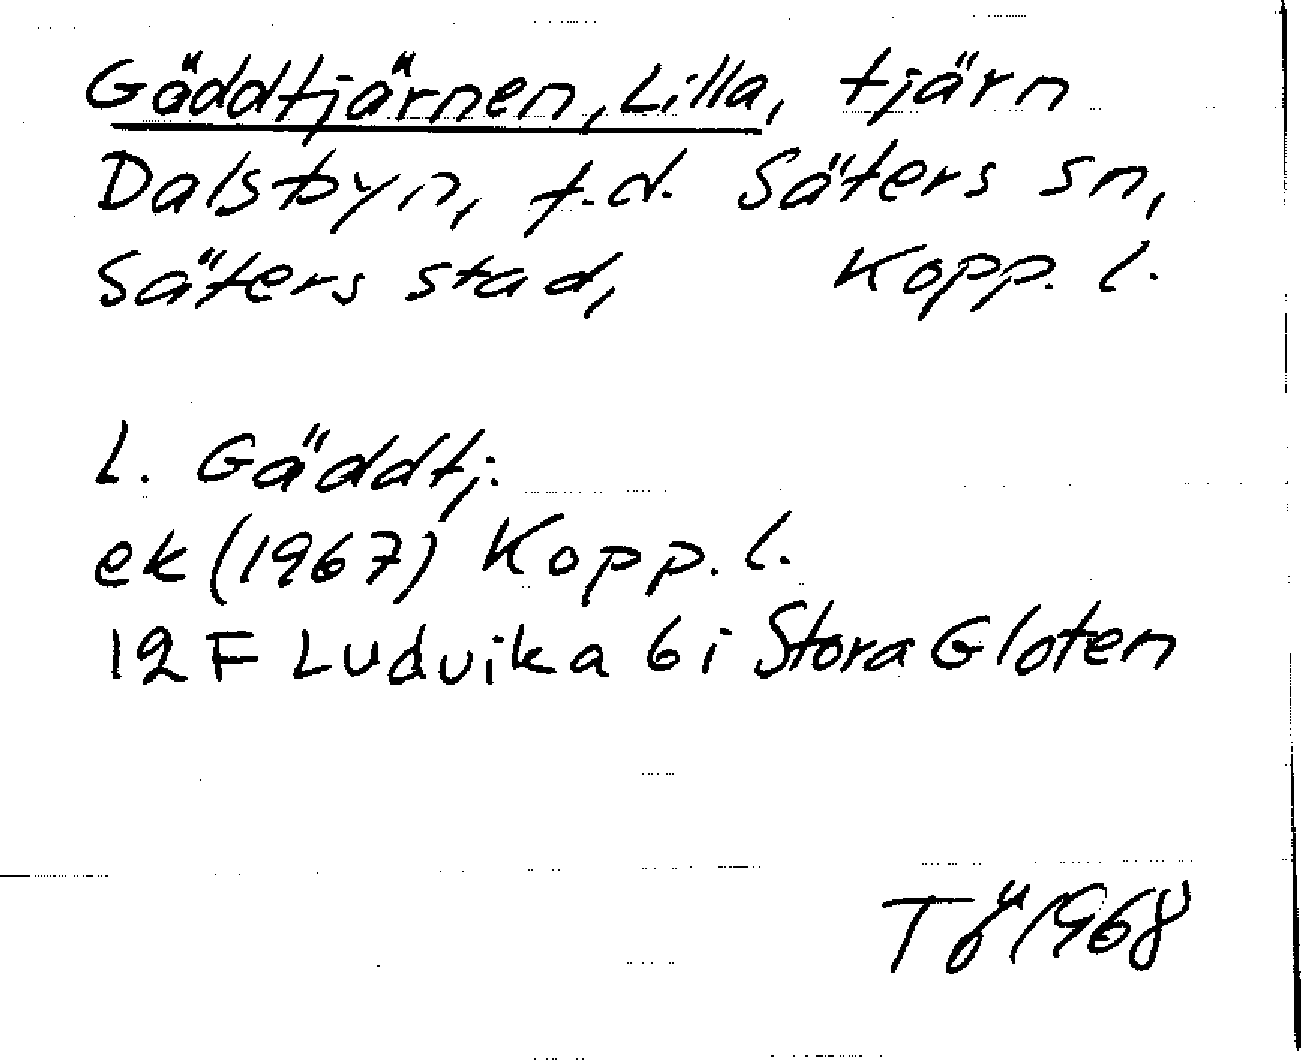 Gäddtjärnen, Lilla, tjärn
Dalsbyn, f.d. Säters sn,
Säters stad, Kopp. l.
L. Gäddtj.
ek (1967) Kopp. l.
12 F Ludvika 6 i Stora Gloten
TÖ 1968